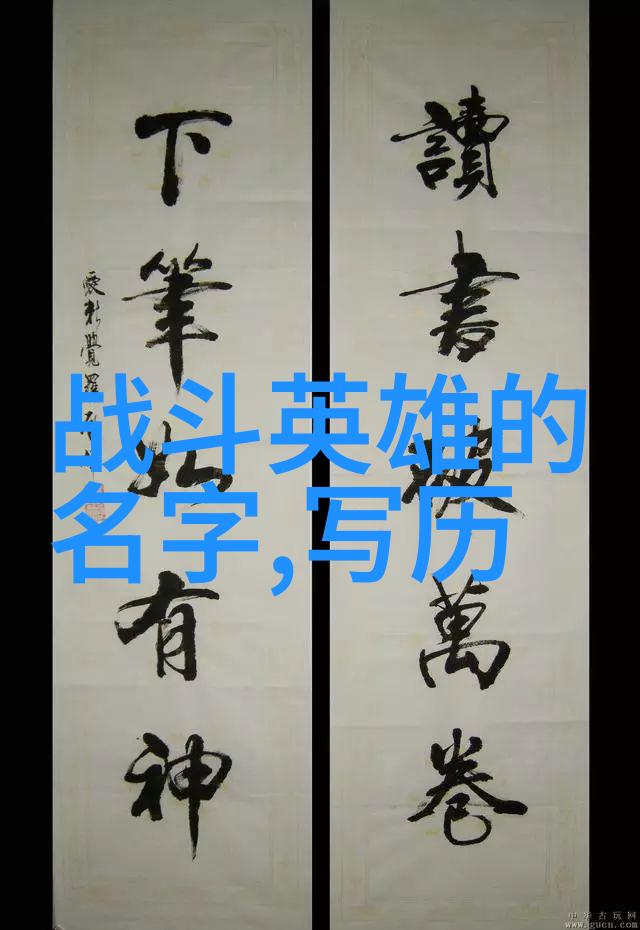 讀書破萬卷
下筆如有神
愛新覺羅
战斗英雄的
名字,写历
中华古玩网
www.gucn.com